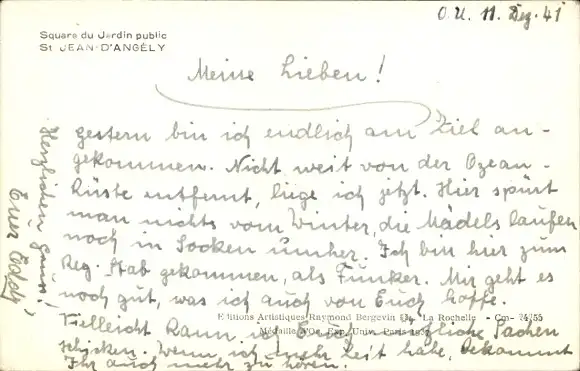 Square du Jardin public
St JEAN-D'ANGÉLY
O.U. 11. Dez. 41
Meine Lieben!
gestern bin ich endlich am Ziel an-
gekommen. Nicht weit von der Ozean-
küste entfernt, liege ich jetzt. Hier spürt
man nichts vom Winter, die Mädels laufen
noch in Socken umher. Ich bin hier zum
Reg. Stab gekommen, als Funker. Mir geht es
noch gut, was ich auch von Euch hoffe.
Vielleicht kann ich Euch Sachen
schicken. Wenn ich mehr Zeit habe, bekommt
Ihr auch mehr zu hören.
Herzlichen Gruss!
Euer
Editions Artistiques Raymond Bergevin La Rochelle - Cm-
Médaille d'Or, Exp. Univ. Paris